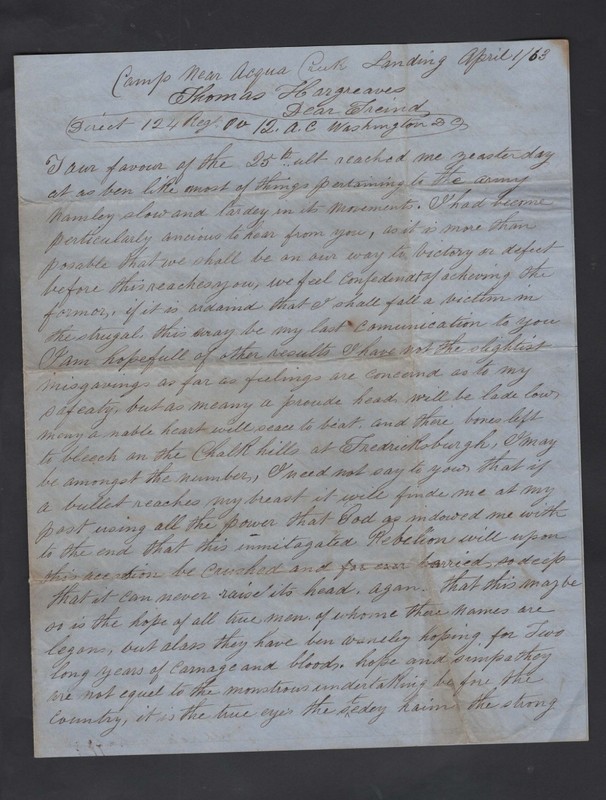 Camp Near Acqua Creek Landing April 1/63
Thomas Hargreaves
Dear Freind
Direct 124 Regt. Pv 12. A. C Washington D C
Your favour of the 25th ult reached me yeasterday
at as ben like most of things pertaining to the army
Namley slow and tardey in its movement. I had become
perticularly ancious to hear from you, as it is more than
posable that we shall be on our way to victory or defeet
before this reaches you, we feel confedent of acheving the
former, if it is ordaind that I shall fall a victim in
the strugal. this may be my last comunication to you
I am hopefull of other results I have not the slightest
misgavings as far as feelings are concernd as to my
safeaty, but as meany a proude head will be lade low,
meny a noble heart will seace to beat. and there bones left
to bleech on the Chalk hills at Fredricksburgh, I may
be amongst the number, I need not say to you, that if
a bullet reaches my breast it will finde me at my
post using all the power that God as indowed me with
to the end that this unmitagated Rebelion will upon
this accation be crushed and for ever burried, so deip
that it can never raise its head. agan. that this may be
so is the hope of all true men. of whome there names are
legans, but alass they have ben vaneley hoping for Two
long years of Carnage and blood. hope and simpathey
are not equel to the monstrous undertaking before the
Country, it is the true eyes the stedey haim the strong